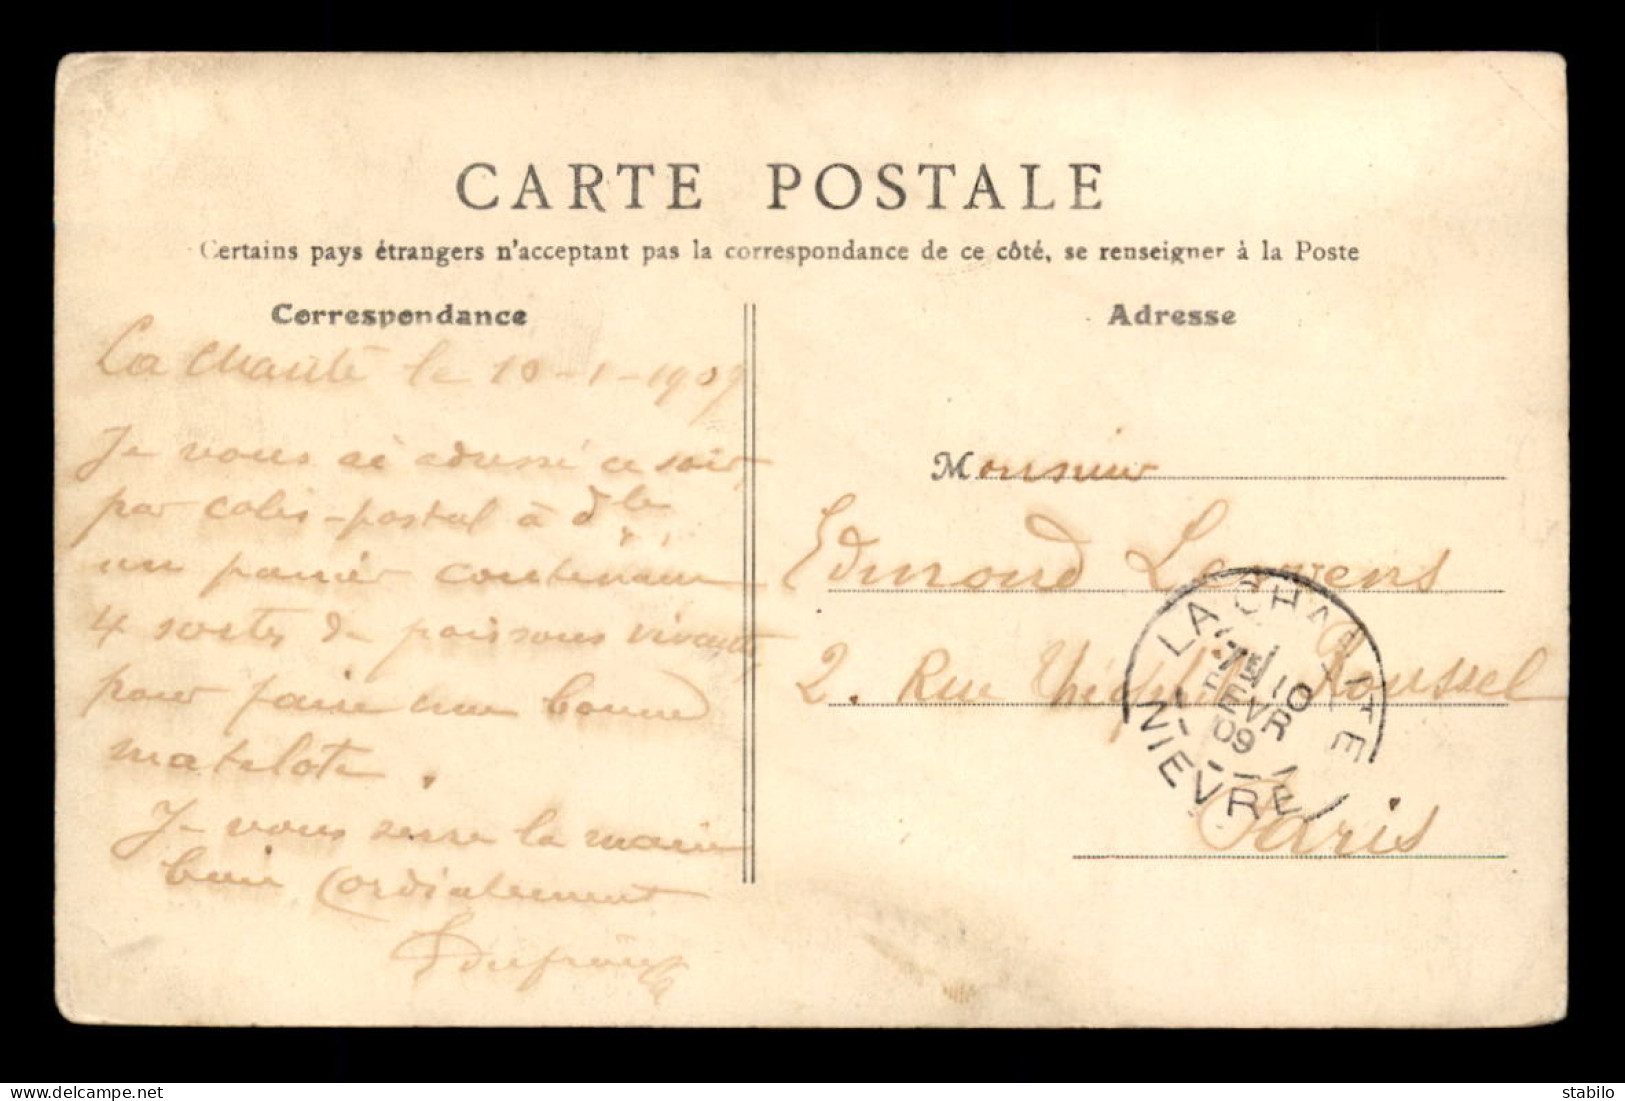 CARTE POSTALE
Certains pays étrangers n'acceptant pas la correspondance de ce côté, se renseigner à la Poste
Correspondance
Adresse
La Charité le 10-1-1909
Je vous ai adressé ce soir,
par colis-postal à dle
un panier contenant
4 sortes de poissons vivants,
pour faire une bonne
matelote.
Je vous serre la main
bien cordialement
Monsieur
Edmond Lauwens
2. Rue Théophile Roussel
Paris
LA CHARITE
7E 10
FEVR
09
NIEVRE
stabilo